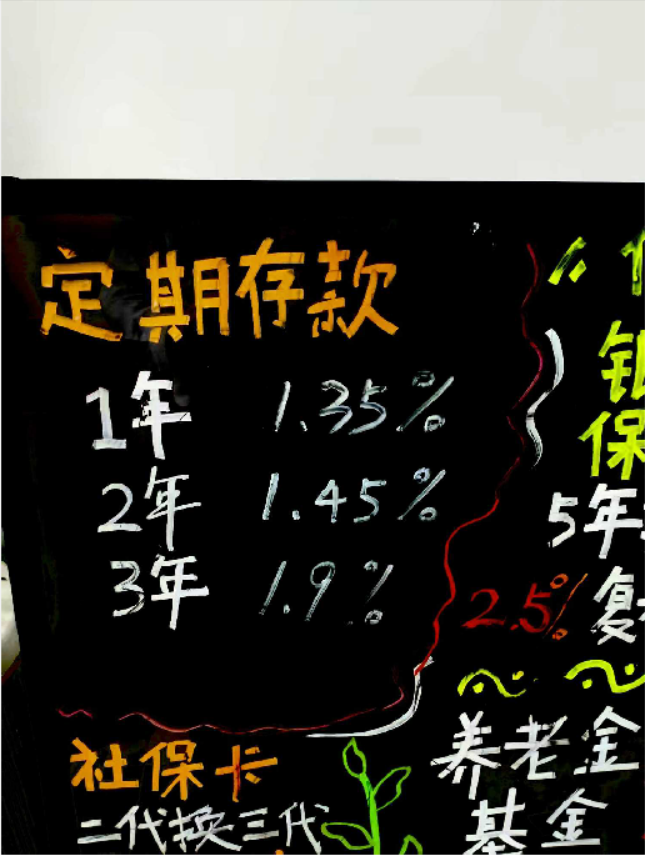 定期存款
1年 1.35%
2年 1.45%
3年 1.9%
银
保
5年
2.5% 复
社保卡
二代换三代
养老金
基金